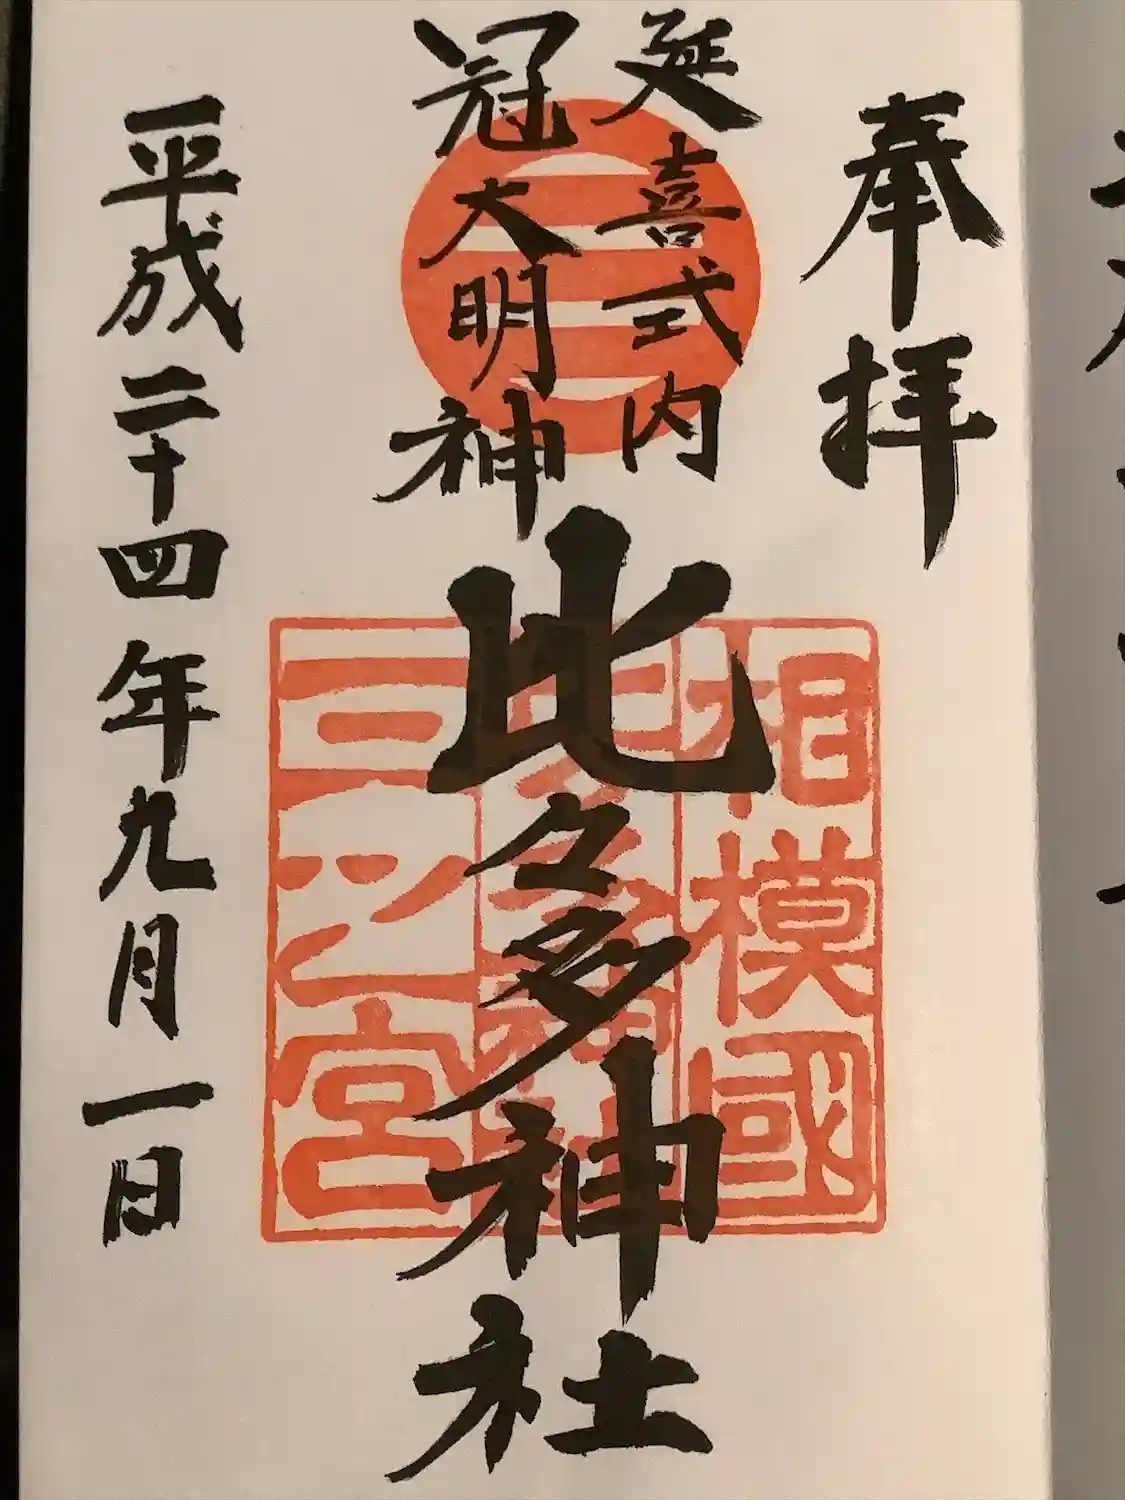 奉拝
延喜式内
冠大明神
比々多神社
相模國
三之宮
平成二十四年九月一日